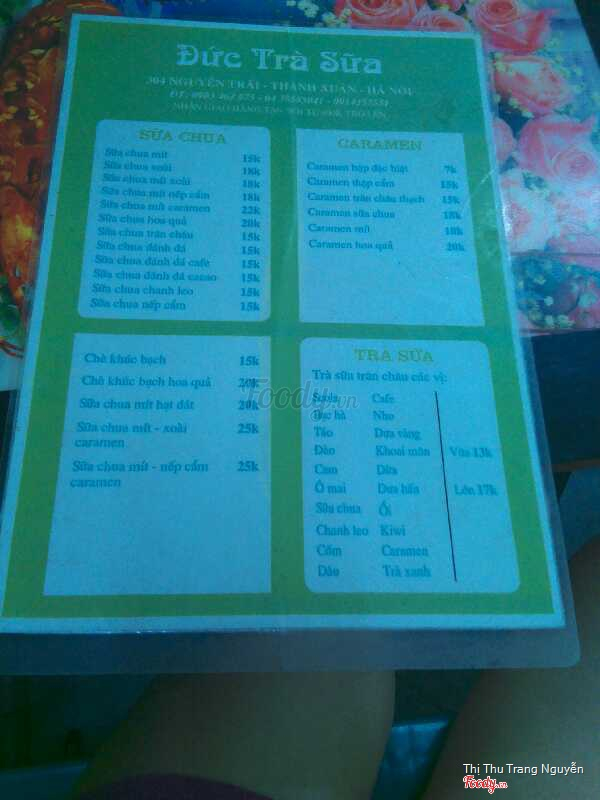 Đức Trà Sữa
304 NGUYỄN TRÃI - THANH XUÂN - HÀ NỘI
SỮA CHUA
Sữa chua mít 15k
Sữa chua xoài 18k
Sữa chua mít xoài 18k
Sữa chua mít nếp cẩm 18k
Sữa chua mít caramen 22k
Sữa chua hoa quả 20k
Sữa chua trân châu 15k
Sữa chua đánh đá 15k
Sữa chua đánh đá cafe 15k
Sữa chua đánh đá cacao 15k
Sữa chua chanh leo 15k
Sữa chua nếp cẩm 15k
CARAMEN
Caramen hấp đặc biệt 7k
Caramen thập cẩm 15k
Caramen trân châu thạch 15k
Caramen sữa chua 18k
Caramen mít 18k
Caramen hoa quả 20k
Chè khúc bạch 15k
Chè khúc bạch hoa quả 20k
Sữa chua mít hạt dát 20k
Sữa chua mít - xoài 25k
caramen
Sữa chua mít - nếp cẩm 25k
caramen
TRÀ SỮA
Trà sữa trân châu các vị:
Socola Cafe
Bạc hà Nho
Táo Dưa vàng
Đào Khoai môn Vừa 13k
Cam Dừa
Ô mai Dưa hấu Lớn 17k
Sữa chua Ổi
Chanh leo Kiwi
Cốm Caramen
Dâu Trà xanh
Foody.vn
Thi Thu Trang Nguyễn
Foody.vn